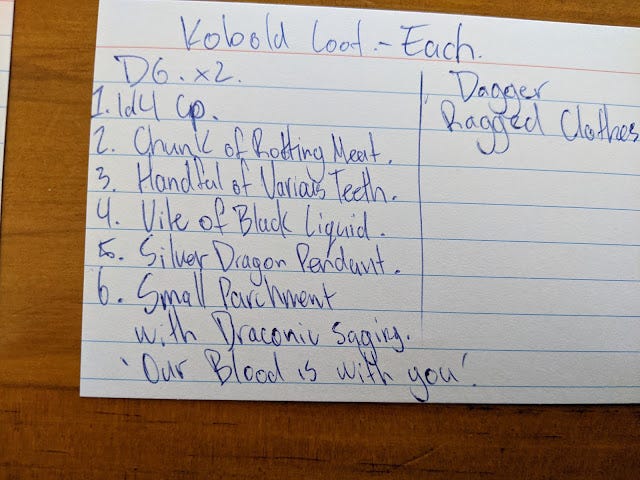 Kobold Loot - Each.
D6. x2.
1. 1d4 Cp.
2. Chunk of Rotting Meat.
3. Handful of Various Teeth.
4. Vile of Black Liquid.
5. Silver Dragon Pendant.
6. Small Parchment
with Draconic Saging.
'Our Blood is with you'.
Dagger
Ragged Clothes